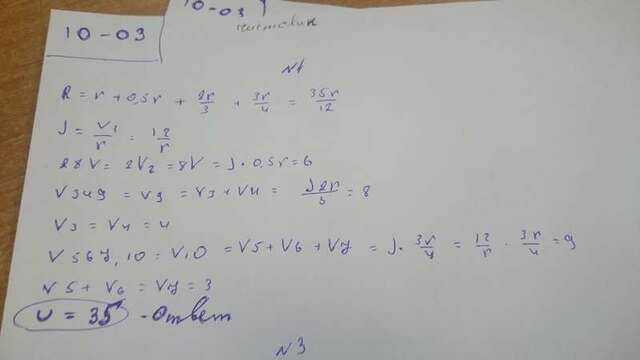 10-03
10-03
чистовик
№1
R = r + 0,5r + 2r/3 + 3r/4 = 35r/12
J = V1/r = 12/r
28V = 2V2 = 8V = J·0,5r = 6
V349 = V9 = V3+V4 = J2r/3 = 8
V3 = V4 = 4
V567,10 = V10 = V5+V6+V7 = J·3r/4 = 12/r · 3r/4 = 9
V5+V6 = V7 = 3
U = 35 - ответ
№3